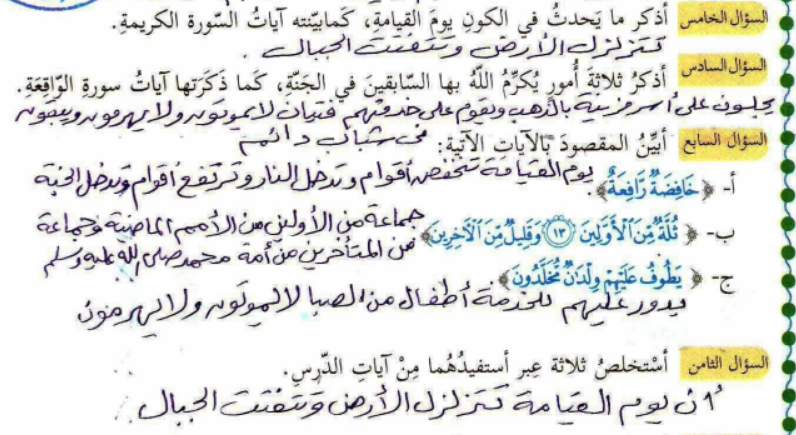 السؤال الخامس أذكر ما يَحدثُ في الكونِ يومَ القيامةِ، كَمابيّنته آياتُ السّورة الكريمةِ.
تتزلزل الأرض وتتفتت الجبال .
السؤال السادس أذكرُ ثلاثةَ أمورٍ يُكرِّمُ اللّهُ بها السّابقينَ في الجَنّةِ، كَما ذَكَرَتها آياتُ سورةِ الواقِعَةِ.
يجلسون على أسر مزينة بالذهب ويقوم على خدمتهم فتيان لا يموتون ولا يهرمون ويبقون
في شباب دائم
السؤال السابع أبيِّنُ المقصودَ بَالآياتِ الآتيةِ:
يوم القيامة تنخفض أقوام وتدخل النار وترتفع أقوام وتدخل الجنة
أ- ﴿ خَافِضَةٌ رَّافِعَةٌ ﴾
جماعة من الأولين من الأمم الماضية وجماعة
ب- ﴿ ثُلَّةٌ مِّنَ ٱلْأَوَّلِينَ ١٣ وَقَلِيلٌ مِّنَ ٱلْآخِرِينَ ﴾
من المتأخرين من أمة محمد صلى الله عليه وسلم
ج- ﴿ يَطُوفُ عَلَيْهِمْ وِلْدَٰنٌ مُّخَلَّدُونَ ﴾
يدور عليهم للخدمة أطفال من الصبا لا يموتون ولا يهرمون
السؤال الثامن أسْتخلصُ ثلاثة عِبر أستفيدُهُما مِنْ آياتِ الدّرسِ.
أن يوم القيامة تتزلزل الأرض وتتفتت الجبال .